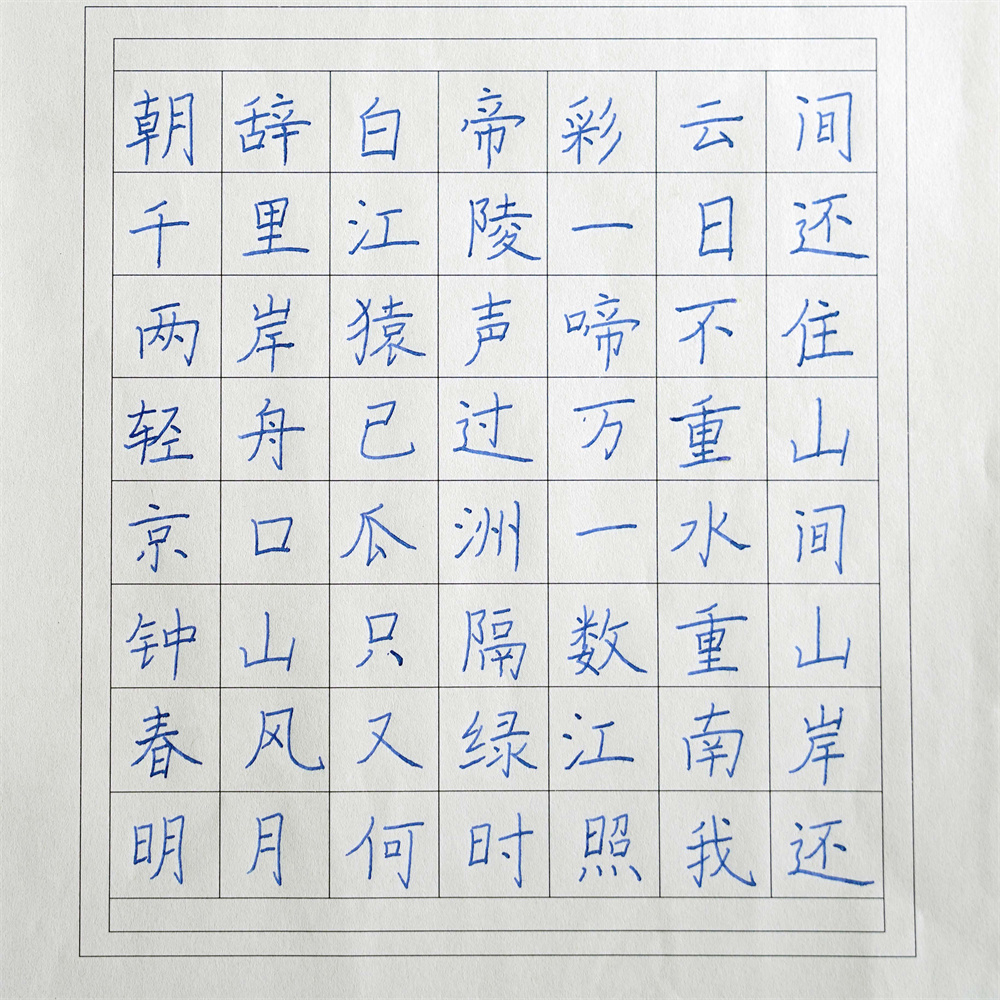 朝辞白帝彩云间
千里江陵一日还
两岸猿声啼不住
轻舟已过万重山
京口瓜洲一水间
钟山只隔数重山
春风又绿江南岸
明月何时照我还